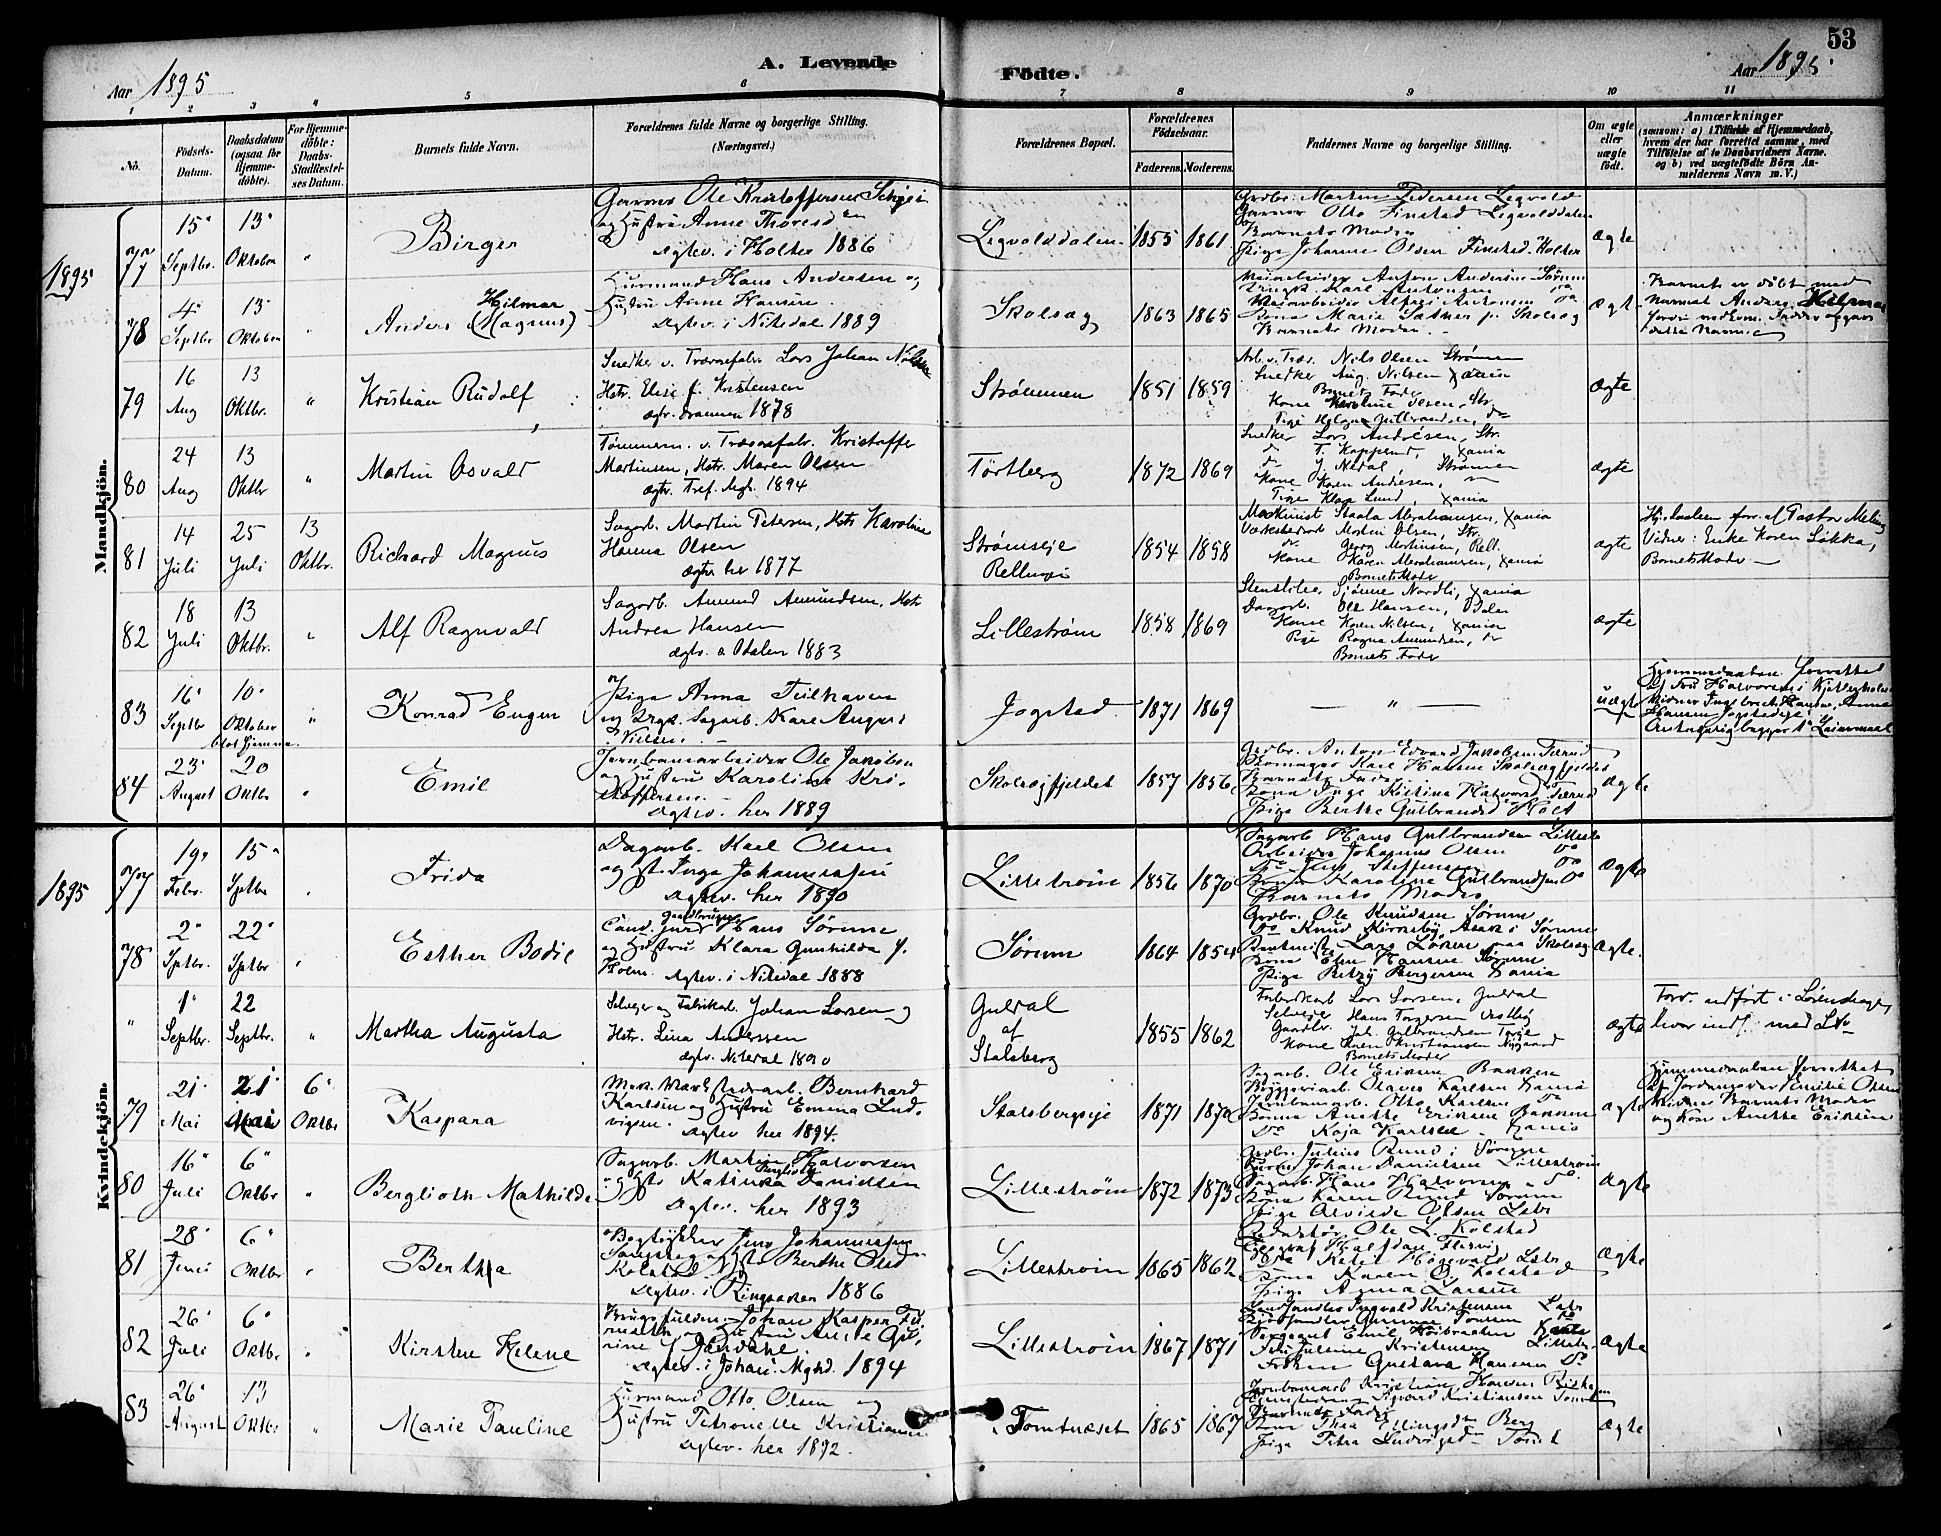 53
Aar 1895
A. Levende
Födte.
Aar 1895
1 2 3 4 5 6 7 8 9 10 11
No.
Födsels-
Datum.
Daabsdatum
(ogsaa for
Hjemme-
döbte).
For Hjemme-
döbte:
Daabs-
Stadfæstel-
ses Datum.
Barnets fulde Navn.
Forældrenes fulde Navne og borgerlige Stilling.
(Næringsvei.)
Forældrenes Bopæl.
Forældrenes
Födselsaar.
Faderens. Moderens.
Faddernes Navne og borgerlige Stilling.
Om ægte
eller
uægte
födt.
Anmærkninger
(saasom: a) i Tilfælde af Hjemmedaab,
hvem der har forrettet samme, med
Tilföielse af to Daabsvidners Navne,
og b) ved uægtefödte Börn An-
melderens Navn m. V.)
Mandkjön.
1895
77
15 Septbr.
13 Oktober
Birger
Ole Kristoffersen
og Hustru Anne Thoresd
Ægtev. i Holter 1886
Legvolddalen
1855 1861
Grdbr. Martin Pedersen Legvold
Otto Finstad Legvolddalen
Barnets Moder
Pige Johanne Olsen Finstad Holter
ægte
78
4 Septbr
13 Oktober
Anders Hilmar
(Magnus)
Huusmand Hans Andersen og
Hustru Anne Hansen
Ægtev. i Nitedal 1889
Skolsæg
1863 1865
Anton Andersen Sørum
Karl Antonsen do
Alfred Antonsen do
Kona Marie Sætner p. Skolsæg
Barnets Moder
ægte
Barnet er döbt med
Navnet Anders Hilmar
dette Navn
79
16 Aug
13 Oktbr.
Kristian Rudolf
Snedker v. Trævarefabr. Lars Johan Nilsen
Hstr. Elise f. Kristensen
ægtv. Drammen 1878
Strömmen
1851 1859
Arb. v. Træv. Nils Olsen Strömmen
Snedker Aug. Nilsen Xania
Barnets Fader
Kone Karoline Olsen, Str.
Pige Helga Gulbrandsen, do
ægte
80
24 Aug
13 Oktbr
Martin Osvald
Tömmerm. v. Trævarefabr. Kristoffer
Martinsen, Hstr. Maren Olsen
ægtv. Tref. Mgh. 1894
Törtberg
1872 1869
Snedker Lars Andresen, Str.
do T. Kopperud, Xania
do J. Nordal, Strömmen
Kone Karen Andresen, do
Pige Klara Lund, Xania
ægte
81
14 Juli
25 Juli
13 Oktbr.
Richard Magnus
Sagarb. Martin Petersen, Hstr Karoline
Hanna Olsen
ægtv. her 1877
Strömseje
Rellingen
1854 1858
Maskinist Staale Abrahamsen, Xania
Værkstedarb Morten Olsen, Str.
do Georg Mortinsen, Rell.
Kone Karen Abrahamsen, Xania
Barnets Moder
ægte
Hjdaaben forr. af Pastor Meling
Vidner: Enke Karen Løkka,
Barnets Moder
82
18 Juli
13 Oktbr.
Alf Ragnvald
Sagarb. Amund Amundsen, Hstr
Andrea Hansen
ægtv. Odalen 1883
Lilleström
1858 1869
Sjönne Nordli, Xania
Dagarb. Ole Hansen, Odalen
Kone Karen Nilsen, Xania
Pige Ragna Amundsen, do
Barnets Fader
ægte
83
16 Septbr
10 Oktober
blot hjemme
Konrad Eugen
Pige Anna Teilhaven
og Ungk. Sagarb. Kare August
Nielsen.
Jogstad
1871 1869
uægte
Hjemmedaaben forrettet
af Fru Halvorsen i
Vidner Ingebret Hansen, Anne
Hansen Jogstadeje
84
23 August
20 Oktbr
Emil
Jernbanearbeider Ole Jakobsen
og Hustru Karoline Kri-
stoffersen.
Ægtev. her 1889
Skolsægfjeldet
1857 1856
Grdbr. Anton Edvard Jakobsen Færud
Karl Hansen Skolsægfjeldet
Barnets Fader
Kona Inge Kristina Halvorsd Færud
Pige Berthe Gulbrandsd Holt
ægte
Kvindekjön.
1895
77
19 Febr.
15 Sptbr
Frida
Dagarb. Karl Olsen
og Hst. Inga Johannesen
Ægtev. her 1890
Lilleström
1856 1870
Sagarb Hans Gulbrandsen Lillestr
Arbeider Johannes Olsen do
do Steffensen do
Kona Karoline Gulbrandsen do
Barnets Moder
ægte
78
2 Sptbr.
22 Sptbr
Esther Bodil
Cand. jur. Gaardbruger Hans Sörum
og Hustru Klara Gunhilda f.
Holm. Ægtev. i Nitedal 1888
Sörum
1864 1854
Grdbr. Ole Knudsen Sörum
do Knud Kirkeby Asak i Sörum
Lars Löken paa Skolsæg
Kona Elen Hansen Sörum
Pige Betzy Bergersen Xania
ægte.
"
1 Septbr.
22 Septbr.
Martha Augusta
Selveger og Fabrikarb. Johan Larsen og
Hstr. Lina Anderssen
ægtv. Nitedal 1890
Guldal
af
Stalsberg
1855 1862
Lars Larsen, Guldal
Selveier Hans Torgersen Vestby
Gaardbr. Joh. Gulbrandsen Torge
Kone Karen Kristiansen Nygaard
Barnets Moder
ægte
Forr. udfört i Lörenskogen,
hvor indf. med
79
21 Mai
21 Mai
6 Oktbr
Kaspara
Mek. Værkstedsarb. Bernhard
Karlsen og Hustru Emma Lud-
vigsen. Ægtev her 1894.
Stalsbergseje
1871 1870
Sagarb. Ole Eriksen Bakken
Bryggeriarb. Olaves Karlsen Xania
Jernbanearb. Otto Karlsen do
Kona Anethe Eriksen Bakken
do Kaja Karlsen Xania
ægte
Hjemmedaaben forrettet
af Jordmoder Emilie Olsen
Vidner Barnets Moder
og Kone Anethe Eriksen
80
16 Juli
6 Oktbr
Berglioth Mathilde
Sagarb. Martin Halvorsen
og Hst Katinka Bergliot Danielsen
Ægtev. her 1893
Lilleström
1872 1873
Grdbr. Julius Rund i Sörum
Johan Danielsen Lilleström
Sagarb. Hans Halvorsen do
Kona Karen Rund Sörum
Pige Alvilde Olsen Lstr
ægte
81
28 Juni
6 Oktbr
Bertha
Bogtrykker Jens Johannesen
og Hst Berthe Olsd
Kolstad.
Ægtev. i Ringsaker 1886
Lilleström
1865 1862
Redaktör Ole L Kolstad
Telegraf Halfdan
Ketil Haagevald Lstr
Kona Karen O. Kolstad
Pige Agna Larsen
ægte
82
26 Juli
6 Oktbr
Kirsten Helene
Brugsfuldm. Johan Kasper Fu-
og Hustru Anette Gu-
rine f. Jærdahl.
Ægtev. i Johan. Mghd. 1894
Lilleström
1867 1871
Landhandler Ingvald Kristensen Lstr
Gunnar Tonsen do
Sergeant Emil Höibraaten Xania
Frk Juline Kristensen Lillestr.
Frøken Gustava Hansen do
ægte
83
26 August
13 Oktbr
Marie Pauline
Huusmand Otto Olsen og
Hustru Petronelle Kristiansen
Ægtev. her 1892.
Tomtræset
1865 1867
Jernbanearb Kristian Hansen
Sigvard Kristiansen
Barnets Fader
Kona Thea Ellingsdr Berg
Pige Petra Ludvigsd
ægte